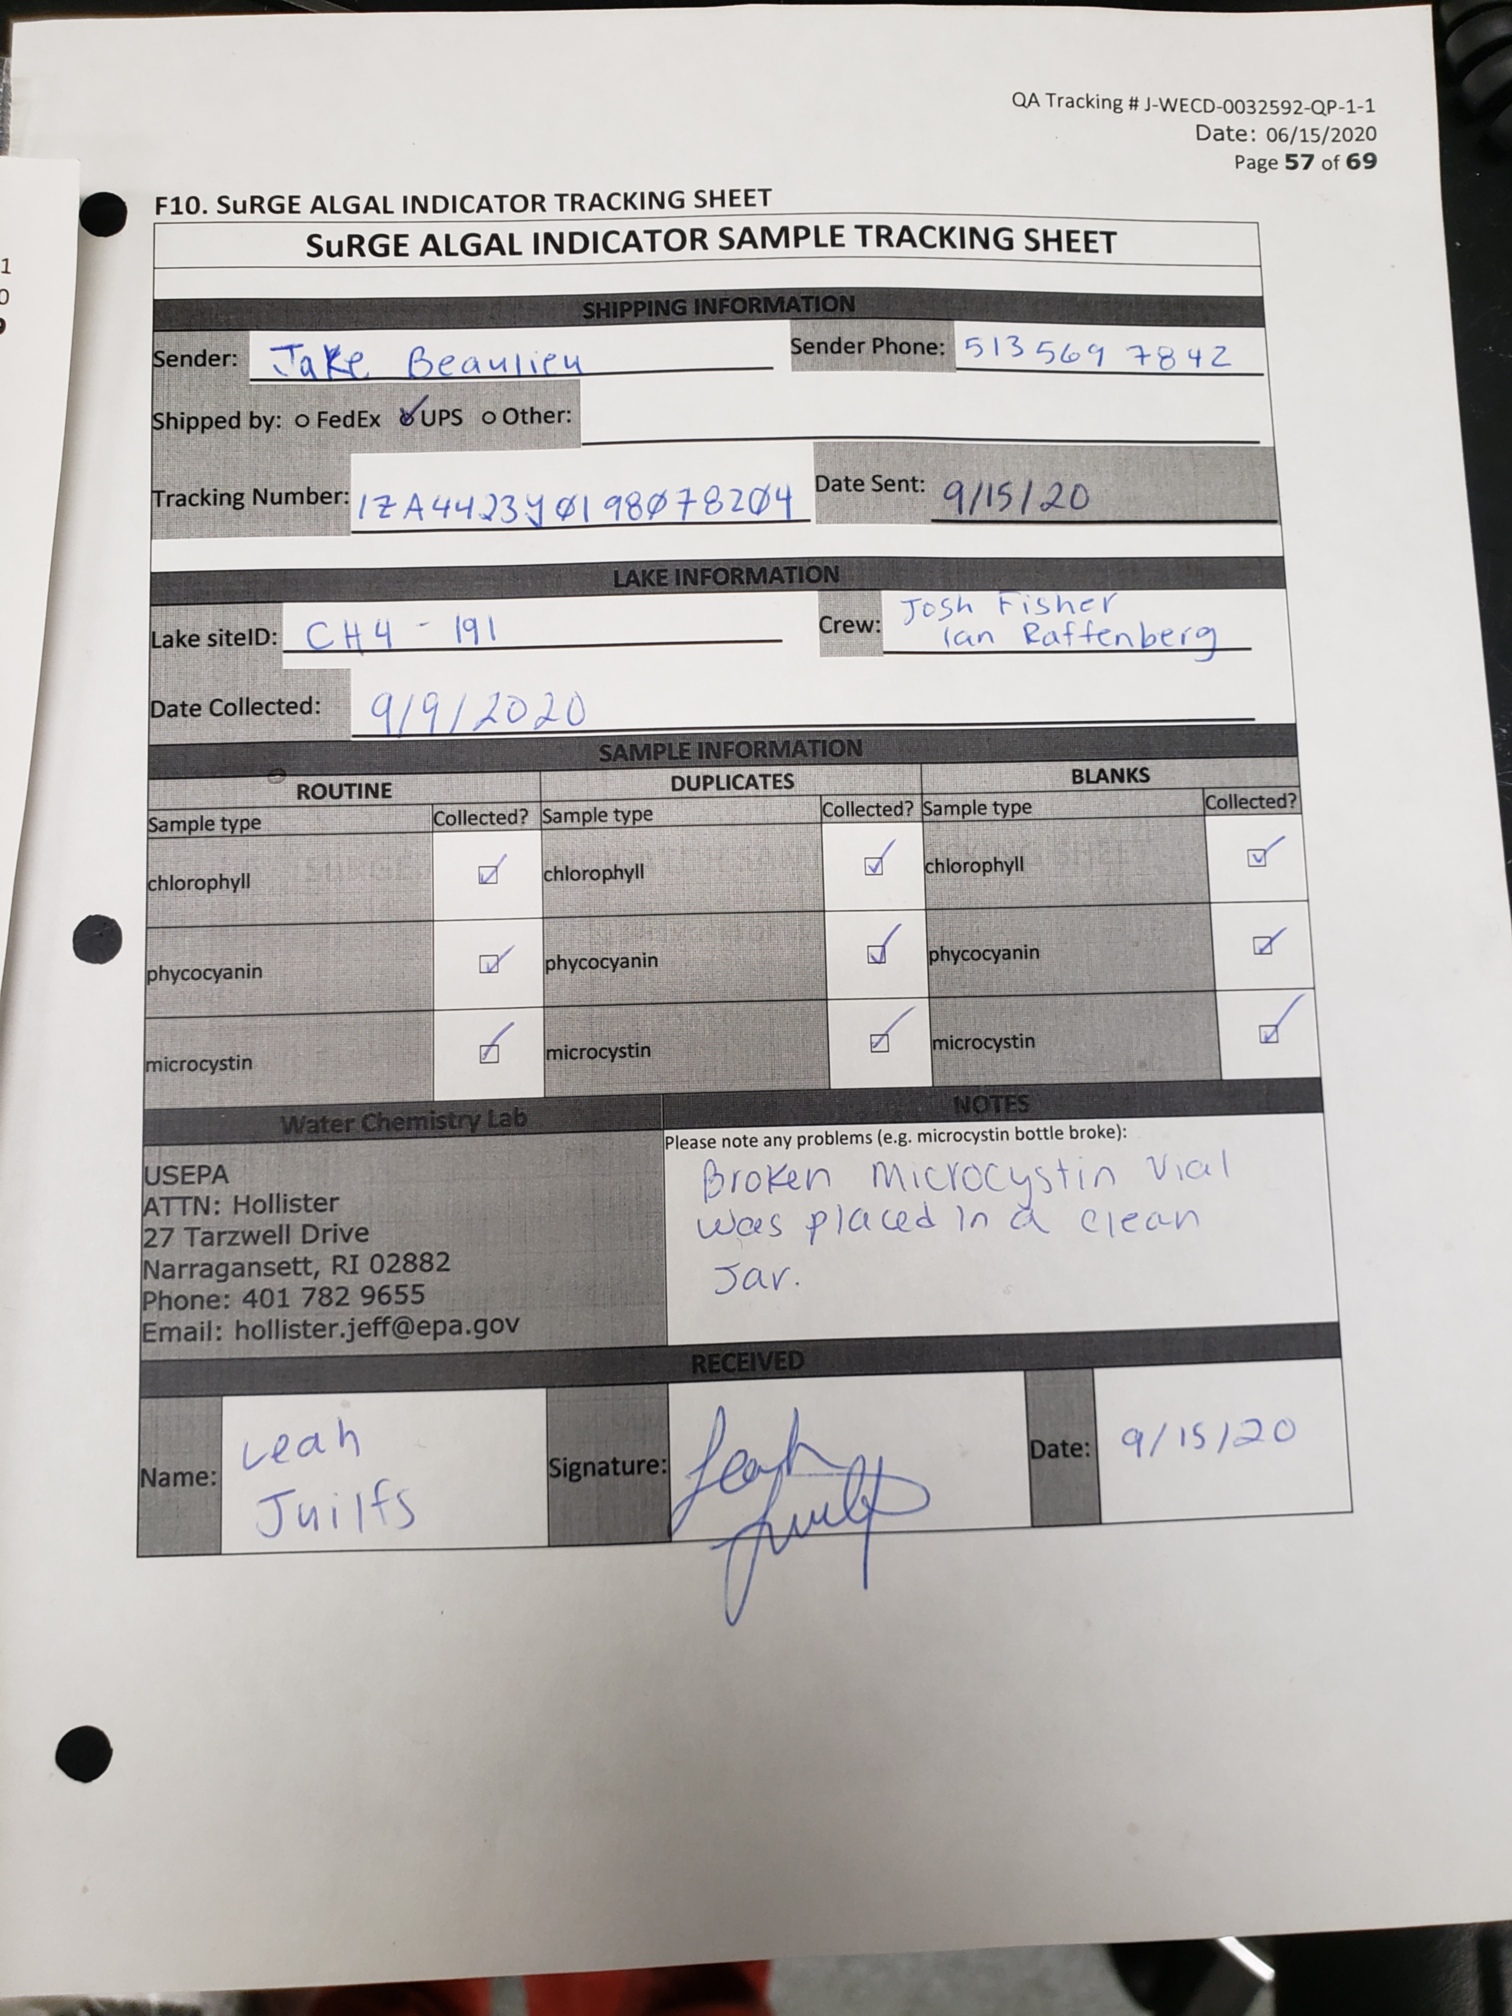 QA Tracking # J-WECD-0032592-QP-1-1
Date: 06/15/2020
Page 57 of 69
F10. SuRGE ALGAL INDICATOR TRACKING SHEET
SuRGE ALGAL INDICATOR SAMPLE TRACKING SHEET
SHIPPING INFORMATION
Sender: Jake Beaulieu Sender Phone: 513 569 7842
Shipped by: o FedEx ✓UPS o Other:
Tracking Number: 1ZA442340198078204 Date Sent: 9/15/20
LAKE INFORMATION
Lake siteID: CH4-191 Crew: Josh Fisher
Ian Raffenberg
Date Collected: 9/9/2020
SAMPLE INFORMATION
ROUTINE DUPLICATES BLANKS
Sample type Collected? Sample type Collected? Sample type Collected?
chlorophyll ☑ chlorophyll ☑ chlorophyll ☑
phycocyanin ☑ phycocyanin ☑ phycocyanin ☑
microcystin ☑ microcystin ☑ microcystin ☑
Water Chemistry Lab NOTES
USEPA
ATTN: Hollister
27 Tarzwell Drive
Narragansett, RI 02882
Phone: 401 782 9655
Email: hollister.jeff@epa.gov
Please note any problems (e.g. microcystin bottle broke):
Broken microcystin vial
was placed in a clean
Jar.
RECEIVED
Name: Leah
Juilfs
Signature: Leah Juilfs
Date: 9/15/20